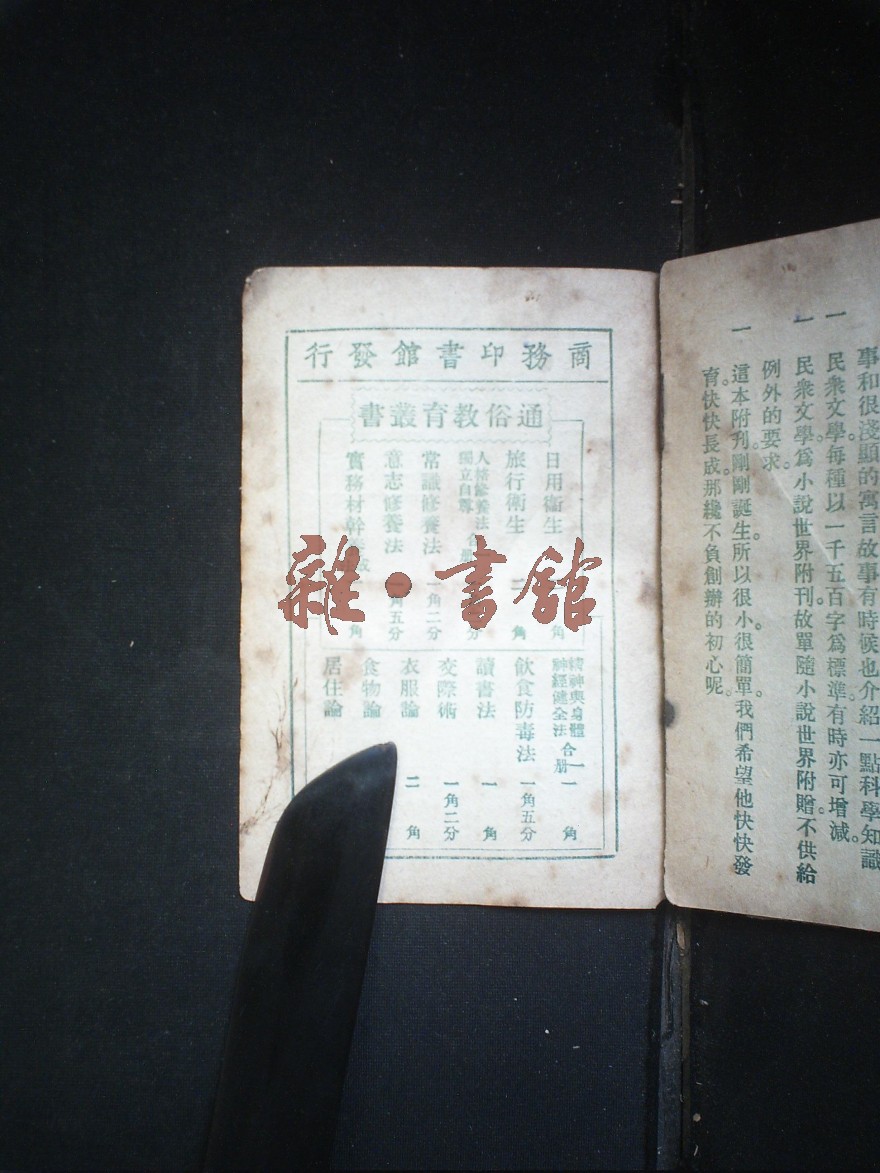 事和很淺顯的寓言故事有時候也介紹一點科學知識
一 民衆文學每種以一千五百字爲標準。有時亦可增減。
一 民衆文學爲小說世界附刊。故單隨小說世界附贈。不供給
例外的要求。
一 這本附刊。剛剛誕生。所以很小。很簡單。我們希望他快快發
育。快快長成。那纔不負創辦的初心呢。
商務印書館發行
通俗教育叢書
日用衞生 角
旅行衞生 二角
人格修養法 獨立自尊 合册 分
常識修養法 一角二分
意志修養法 一角五分
實務材幹 角
精神與身體 神經健全法 合一册 一角
飲食防毒法 一角五分
讀書法 一角
交際術 一角二分
衣服論 二角
食物論
居住論
雜·書館